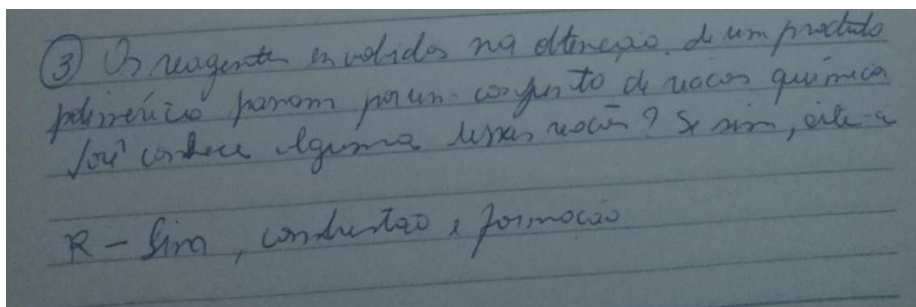 ③ Os reagentes envolvidos na obtenção de um produto
polimérico passam por um conjunto de reações química
Você conhece alguma dessas reações? Se sim, cite-a
R - Sim, combustão e formação